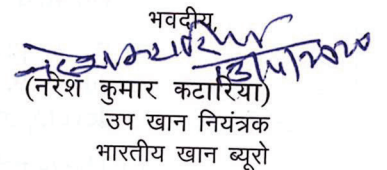 भवदीय
(नरेश कुमार कटारिया)
उप खान नियंत्रक
भारतीय खान ब्यूरो